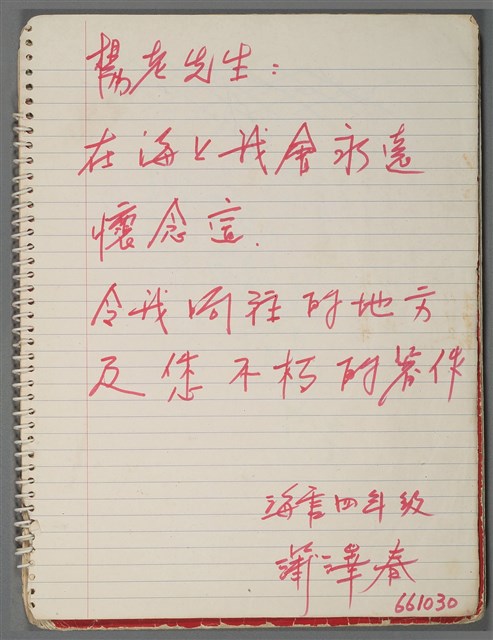 楊老先生：
在海上我會永遠
懷念這.
令我向往的地方
及您不朽的著作
海專四年級
澤春
661030